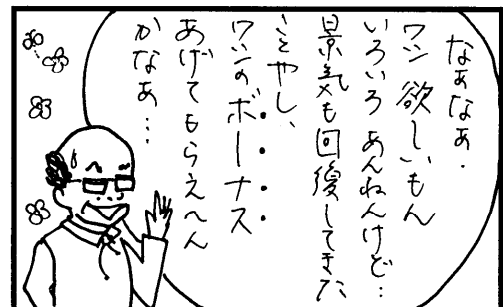 なぁなぁ．
ワシ 欲しいもん
いろいろ あんねんけど…
景気も回復してきた
ことやし、
ワシのボーナス
あげてもらえへん
かなあ…